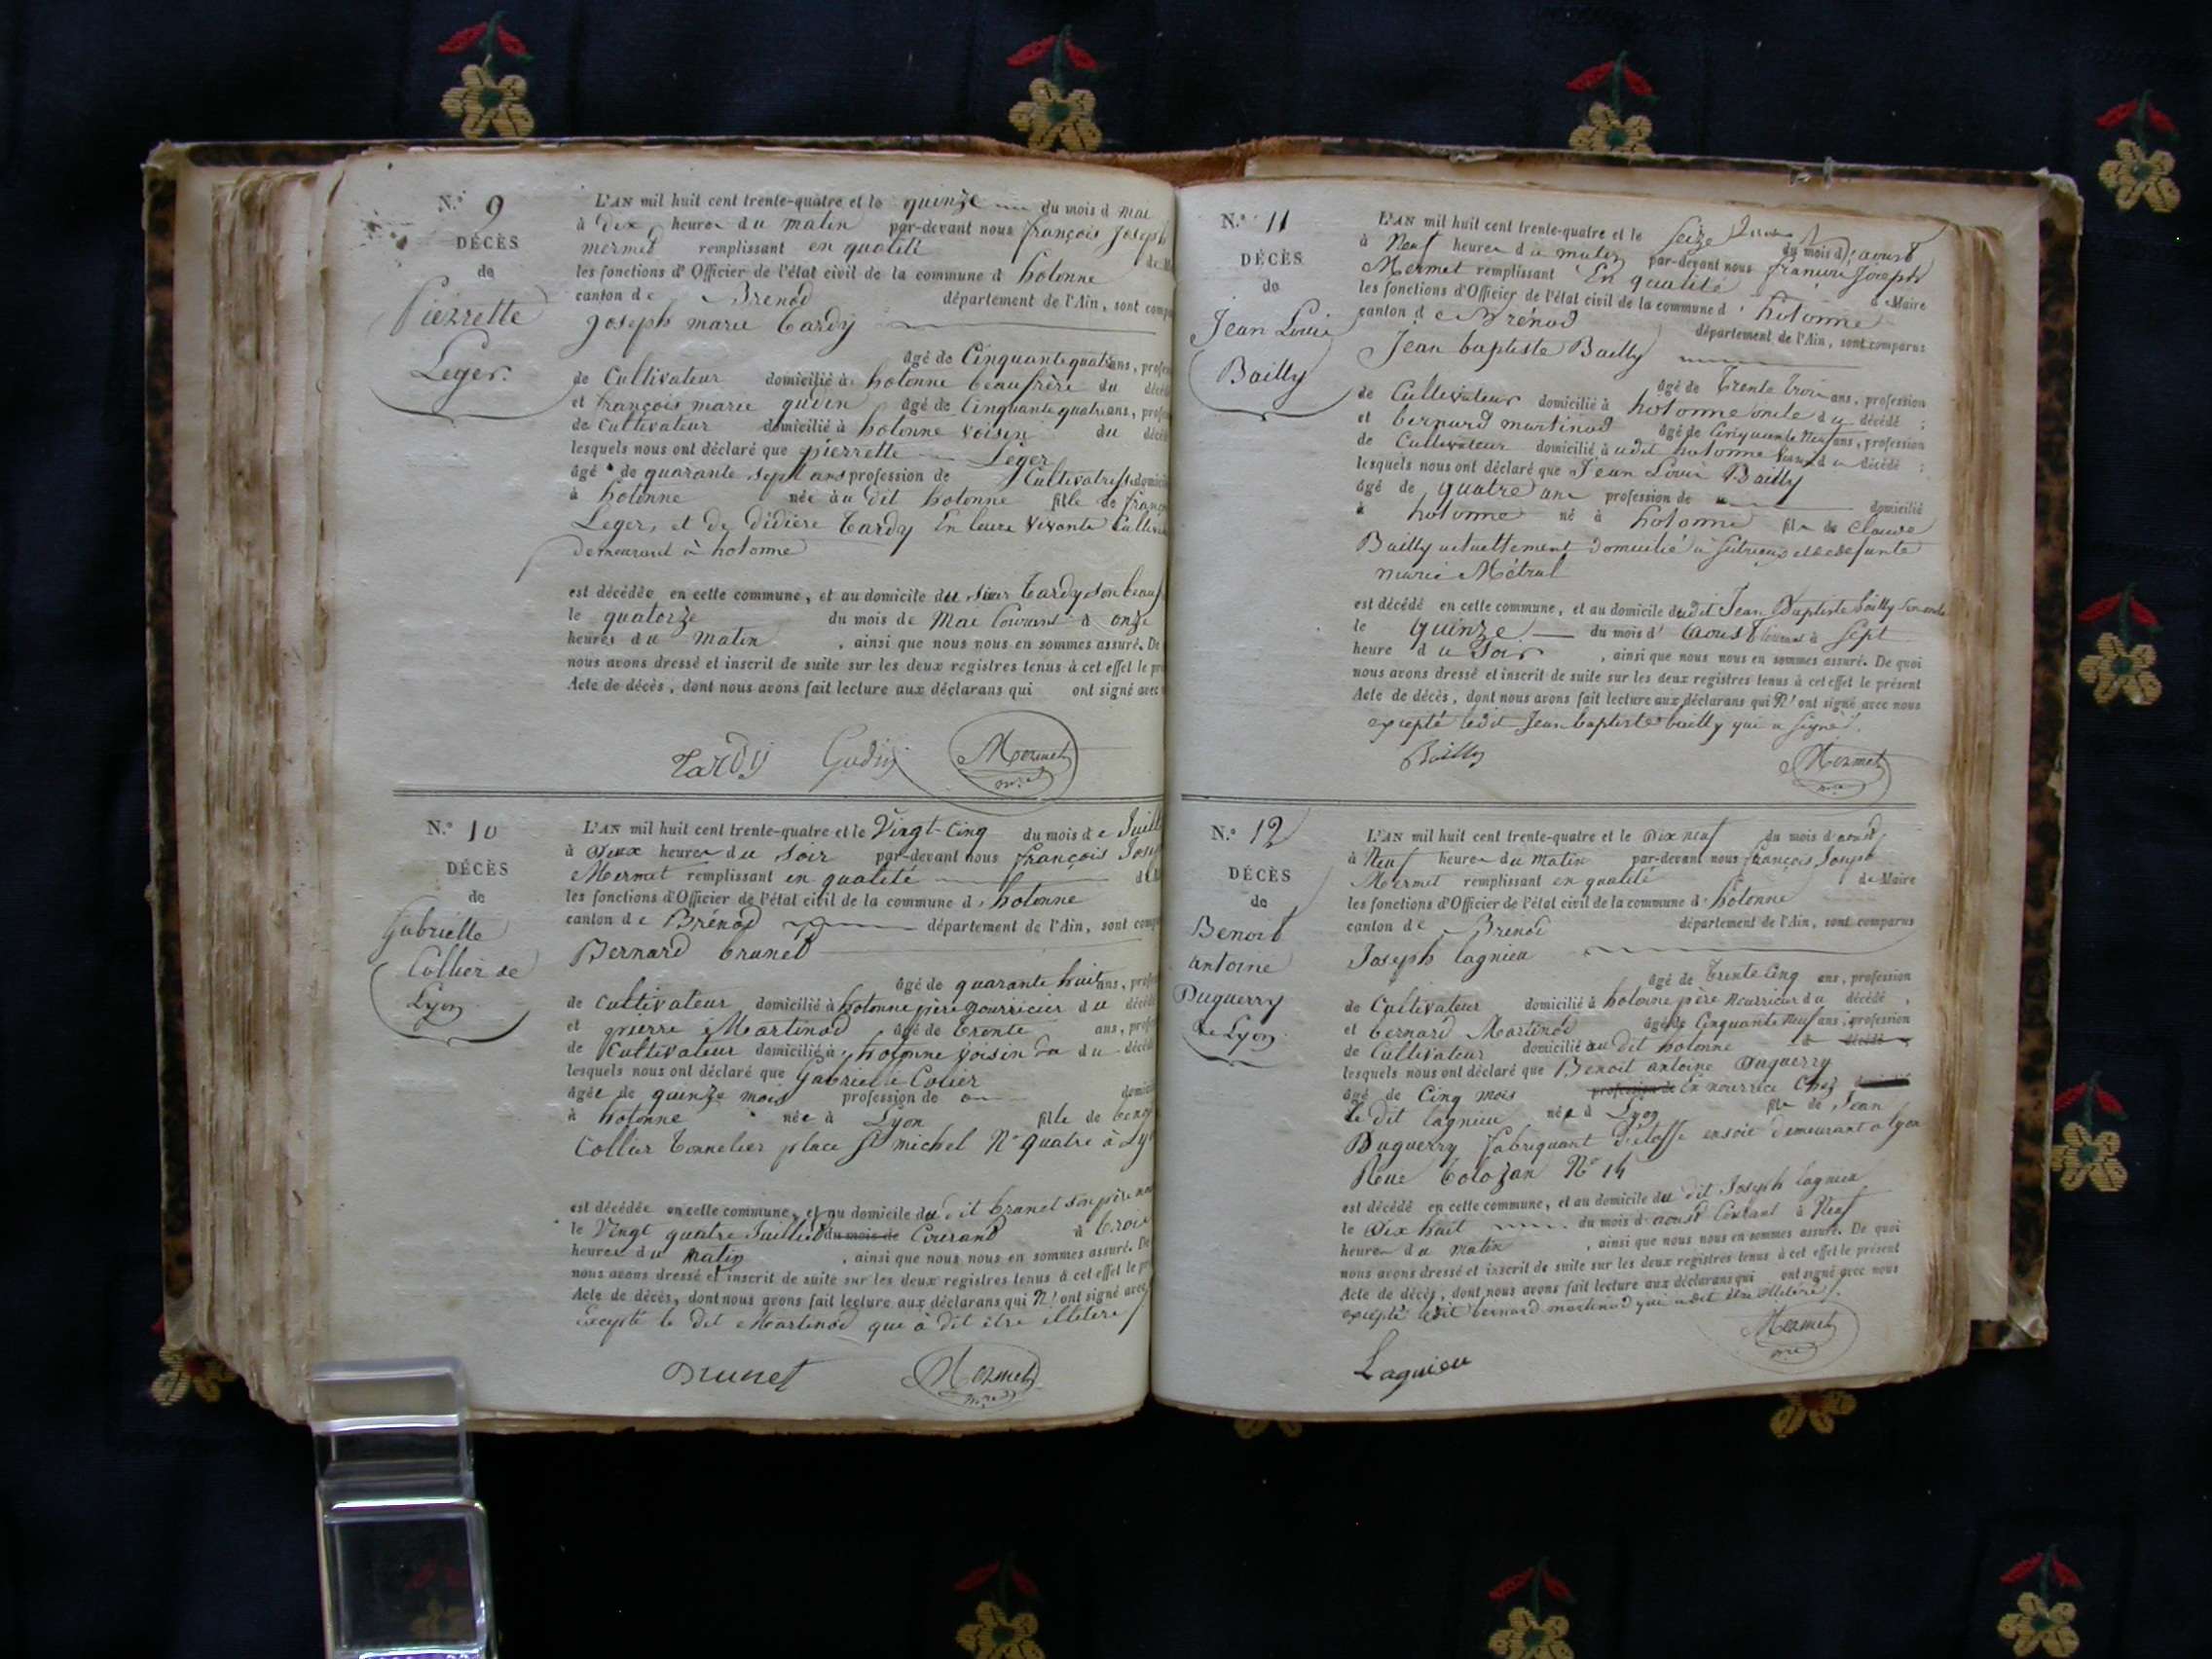 N.° 9
DÉCÈS
de
Pierrette
Leger.
L'AN mil huit cent trente-quatre et le quinze du mois d mai
à Dix heures du matin par-devant nous françois Joseph
mermet remplissant en qualité de M
les fonctions d'Officier de l'état civil de la commune d hotonne
canton de Brenod département de l'Ain, sont comp
Joseph marie tardy
âgé de Cinquante quatre ans, profes
de Cultivateur domicilié à hotonne beaufrère du décé
et françois marie gudin âgé de Cinquante quatre ans, prof
de Cultivateur domicilié à hotonne voisin du décé
lesquels nous ont déclaré que pierrette Leger
âgé de quarante sept ans profession de Cultivatrice domici
à hotonne née au dit hotonne fille de franç
Leger, et de didière tardy En leurs vivants Cultiva
demeurant à hotonne
est décédée en cette commune, et au domicile du sieur tardy son beauf
le quatorze du mois de Mai Courant à onze
heures du matin , ainsi que nous nous en sommes assuré. De
nous avons dressé et inscrit de suite sur les deux registres tenus à cet effet le pr
Acte de décès, dont nous avons fait lecture aux déclarans qui ont signé avec
Tardy Gudin Mermet
N.° 10
DÉCÈS
de
Gabrielle
Collier de
Lyon
L'AN mil huit cent trente-quatre et le Vingt-Cinq du mois de Juill
à Deux heures du soir par-devant nous françois Jose
Mermet remplissant en qualité
les fonctions d'Officier de l'état civil de la commune d hotonne
canton de Brénod département de l'Ain, sont comp
Bernard brunet
âgé de quarante huit ans, prof
de Cultivateur domicilié à hotonne père nourricier du décédé
et pierre Martinod âgé de trente ans, prof
de Cultivateur domicilié à hotonne voisin du du décéd
lesquels nous ont déclaré que Gabrielle Colier
âgée de quinze mois profession de domici
à hotonne née à Lyon fille de
Collier tonnelier place St michel N° quatre à Ly
est décédée en cette commune, et au domicile du dit brunet son père nou
le Vingt quatre Juillet du mois de Courand à trois
heures du matin , ainsi que nous nous en sommes assuré. De
nous avons dressé et inscrit de suite sur les deux registres tenus à cet effet le pr
Acte de décès, dont nous avons fait lecture aux déclarans qui N' ont signé avec
Excepté le dit Martinod qui à dit être illetere
Brunet Mermet
N.° 11
DÉCÈS
de
Jean Louis
Bailly
L'AN mil huit cent trente-quatre et le seize du mois d'aoust
à Neuf heures du matin par-devant nous françois Joseph
Mermet remplissant En qualité de Maire
les fonctions d'Officier de l'état civil de la commune d' hotonne
canton de Brénod département de l'Ain, sont comparus
Jean baptiste Bailly
âgé de trente trois ans, profession
de Cultivateur domicilié à hotonne oncle du décédé ;
et bernard martinod âgé de Cinquante Neuf ans, profession
de Cultivateur domicilié à udit hotonne voisin du décédé ;
lesquels nous ont déclaré que Jean Louis Bailly
âgé de quatre ans profession de domicilié
à hotonne né à hotonne fils de Claude
Bailly actuellement domicilié à Sutrieux et de defunte
marie Métral
est décédé en cette commune, et au domicile dudit Jean Baptiste Bailly son oncle
le quinze du mois d' aoust courant à sept
heure du Soir , ainsi que nous nous en sommes assuré. De quoi
nous avons dressé et inscrit de suite sur les deux registres tenus à cet effet le présent
Acte de décès, dont nous avons fait lecture aux déclarans qui N' ont signé avec nous
excepté ledit Jean baptiste bailly qui a signé.
Bailly Mermet
N.° 12
DÉCÈS
de
Benoit
antoine
Duguerry
de Lyon
L'AN mil huit cent trente-quatre et le Dix neuf du mois d'aoust
à Neuf heures du matin par-devant nous françois Joseph
Mermet remplissant en qualité de Maire
les fonctions d'Officier de l'état civil de la commune d' hotonne
canton de Brenod département de l'Ain, sont comparus
Joseph lagnieu
âgé de trente Cinq ans, profession
de Cultivateur domicilié à hotonne père Nourricier du décédé ,
et bernard Martinod âgé de Cinquante Neuf ans, profession
de Cultivateur domicilié au dit hotonne d décédé
lesquels nous ont déclaré que Benoit antoine Duguerry
âgé de Cinq mois profession de En nourrice Chez
le dit lagnieu née à Lyon fils de Jean
Duguerry fabriquant d'étoffe en soie demeurant a lyon
Rue tolozan N° 14
est décédé en cette commune, et au domicile du dit Joseph lagnieu
le Dix huit du mois d aoust Courant à Neuf
heures du matin , ainsi que nous nous en sommes assuré. De quoi
nous avons dressé et inscrit de suite sur les deux registres tenus à cet effet le présent
Acte de décès, dont nous avons fait lecture aux déclarans qui ont signé avec nous
excepté ledit bernard martinod qui a dit être illetéré.
Lagnieu Mermet